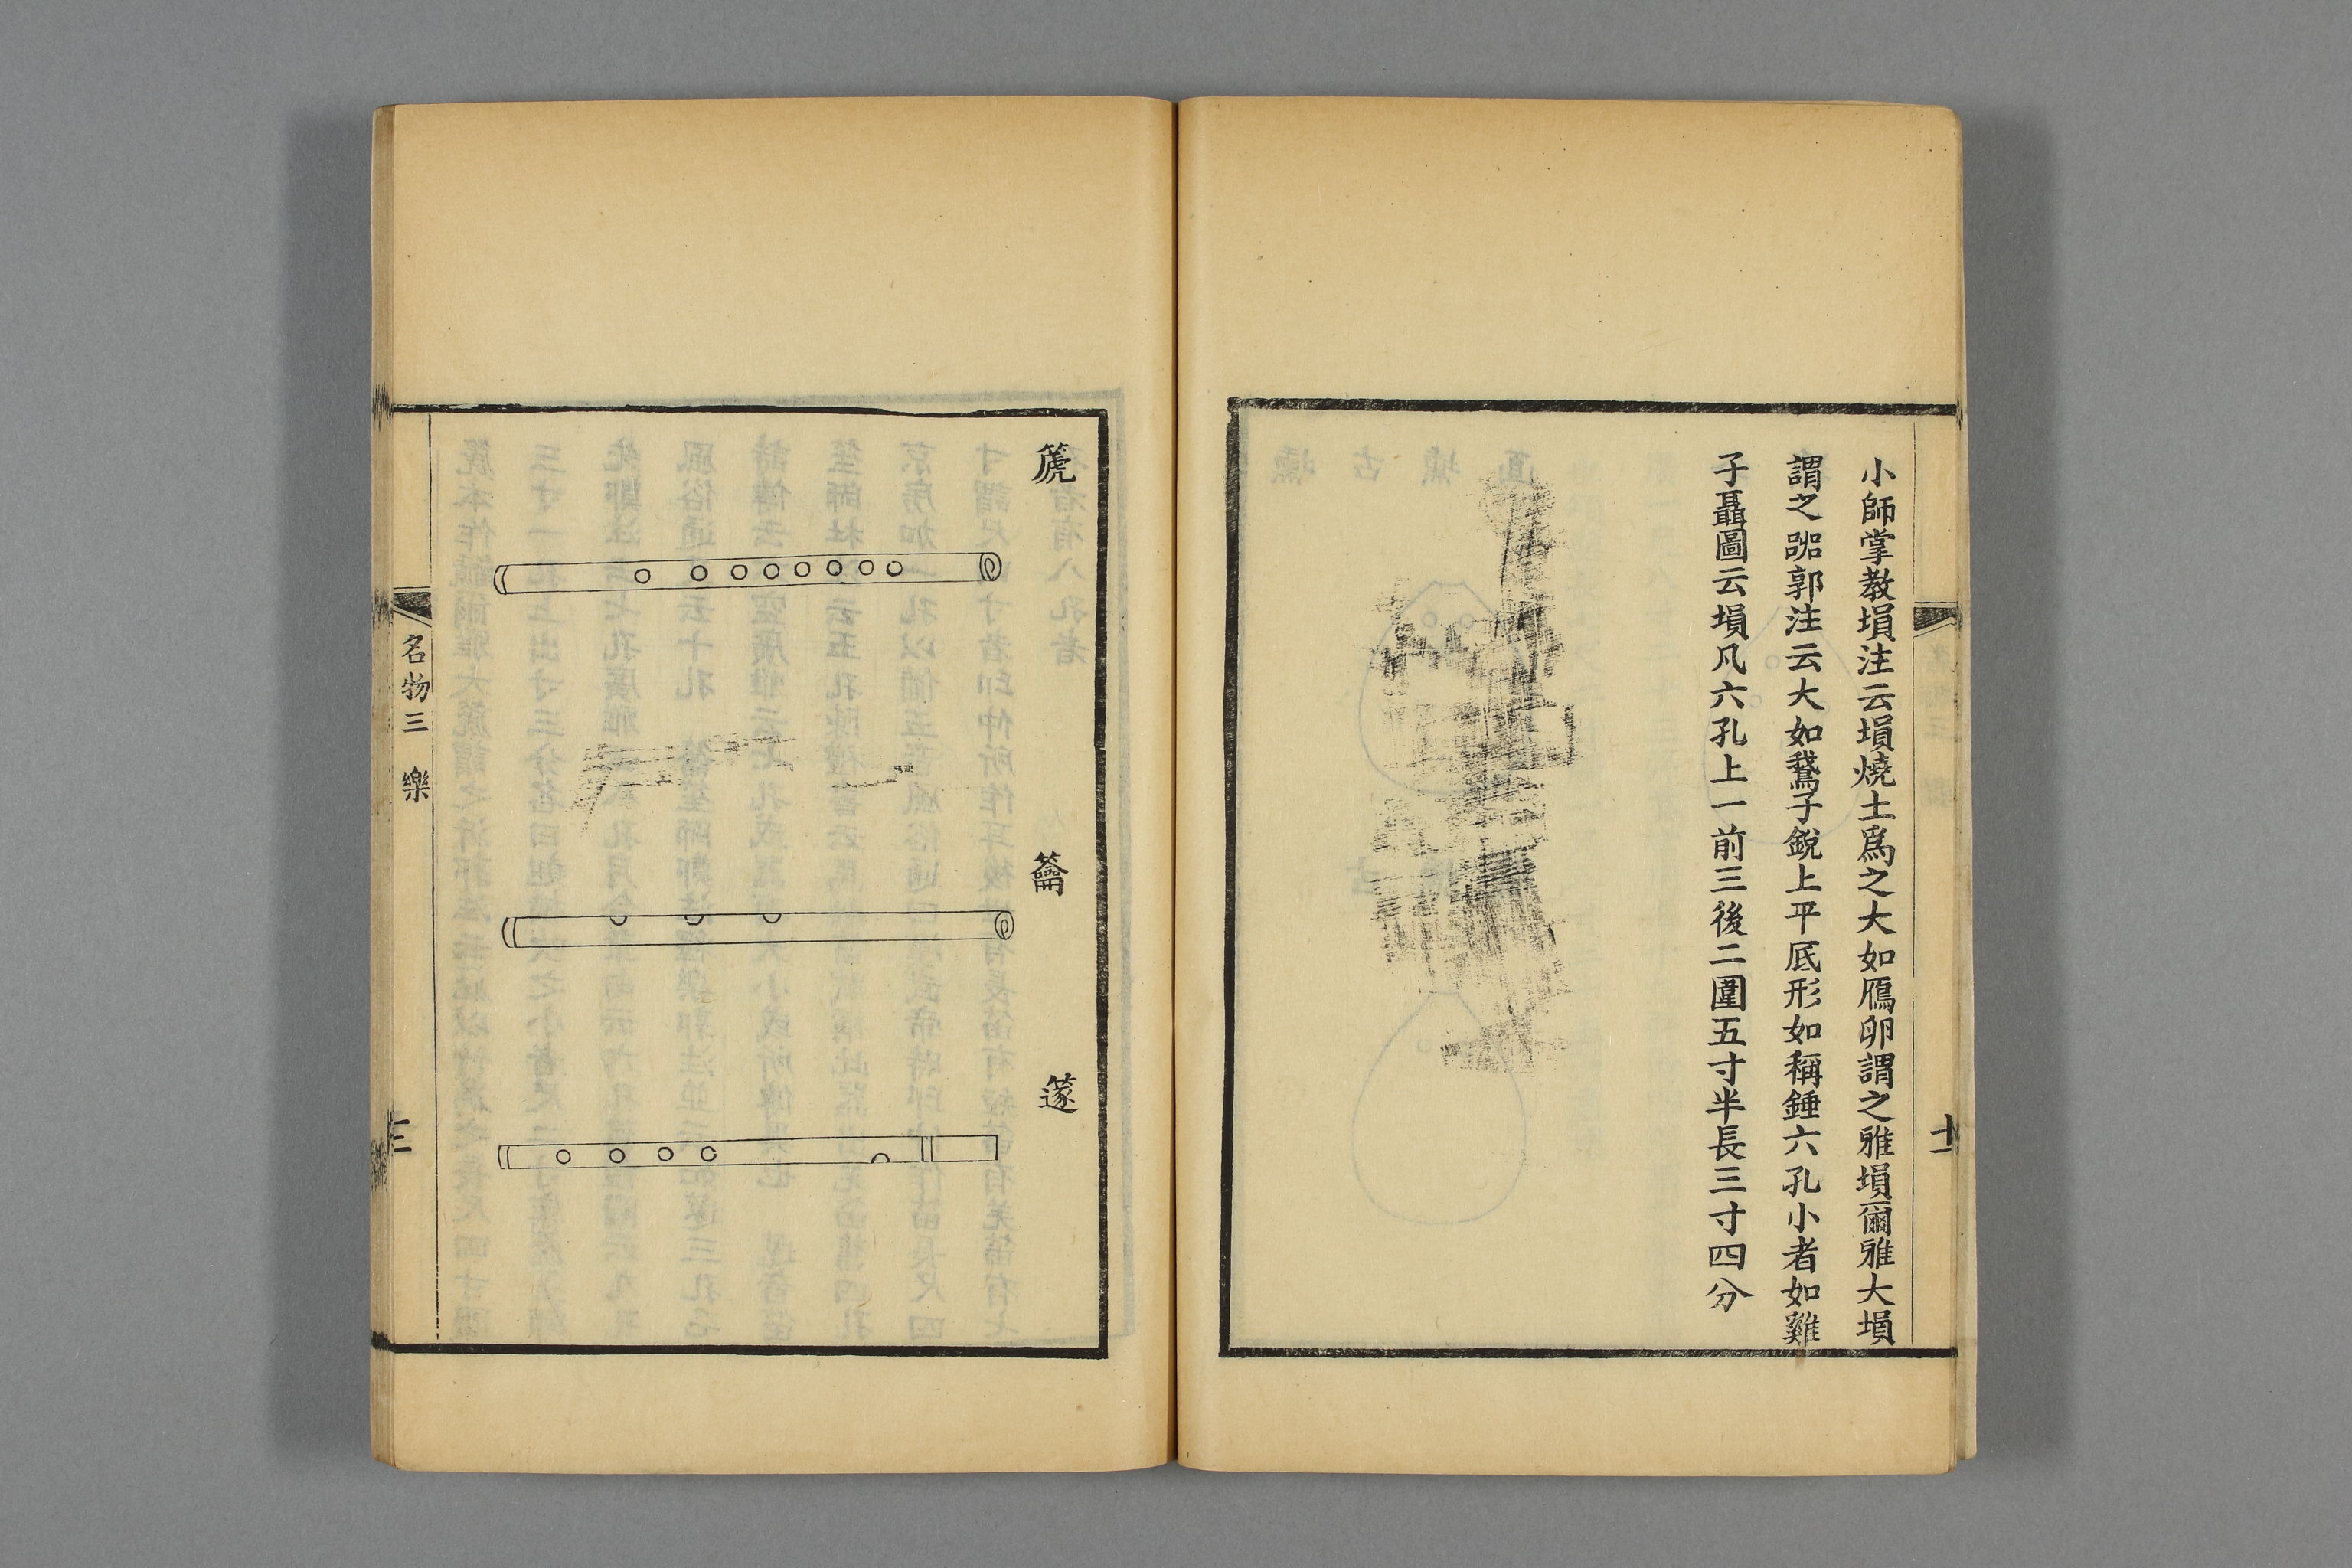 小師掌教塤注云塤燒土爲之大如鴈卵謂之雅塤爾雅大塤
謂之㗊郭注云大如鵝子銳上平底形如稱錘六孔小者如雞
子聶圖云塤凡六孔上一前三後二圍五寸半長三寸四分
篪
籥
篴
名物三
樂